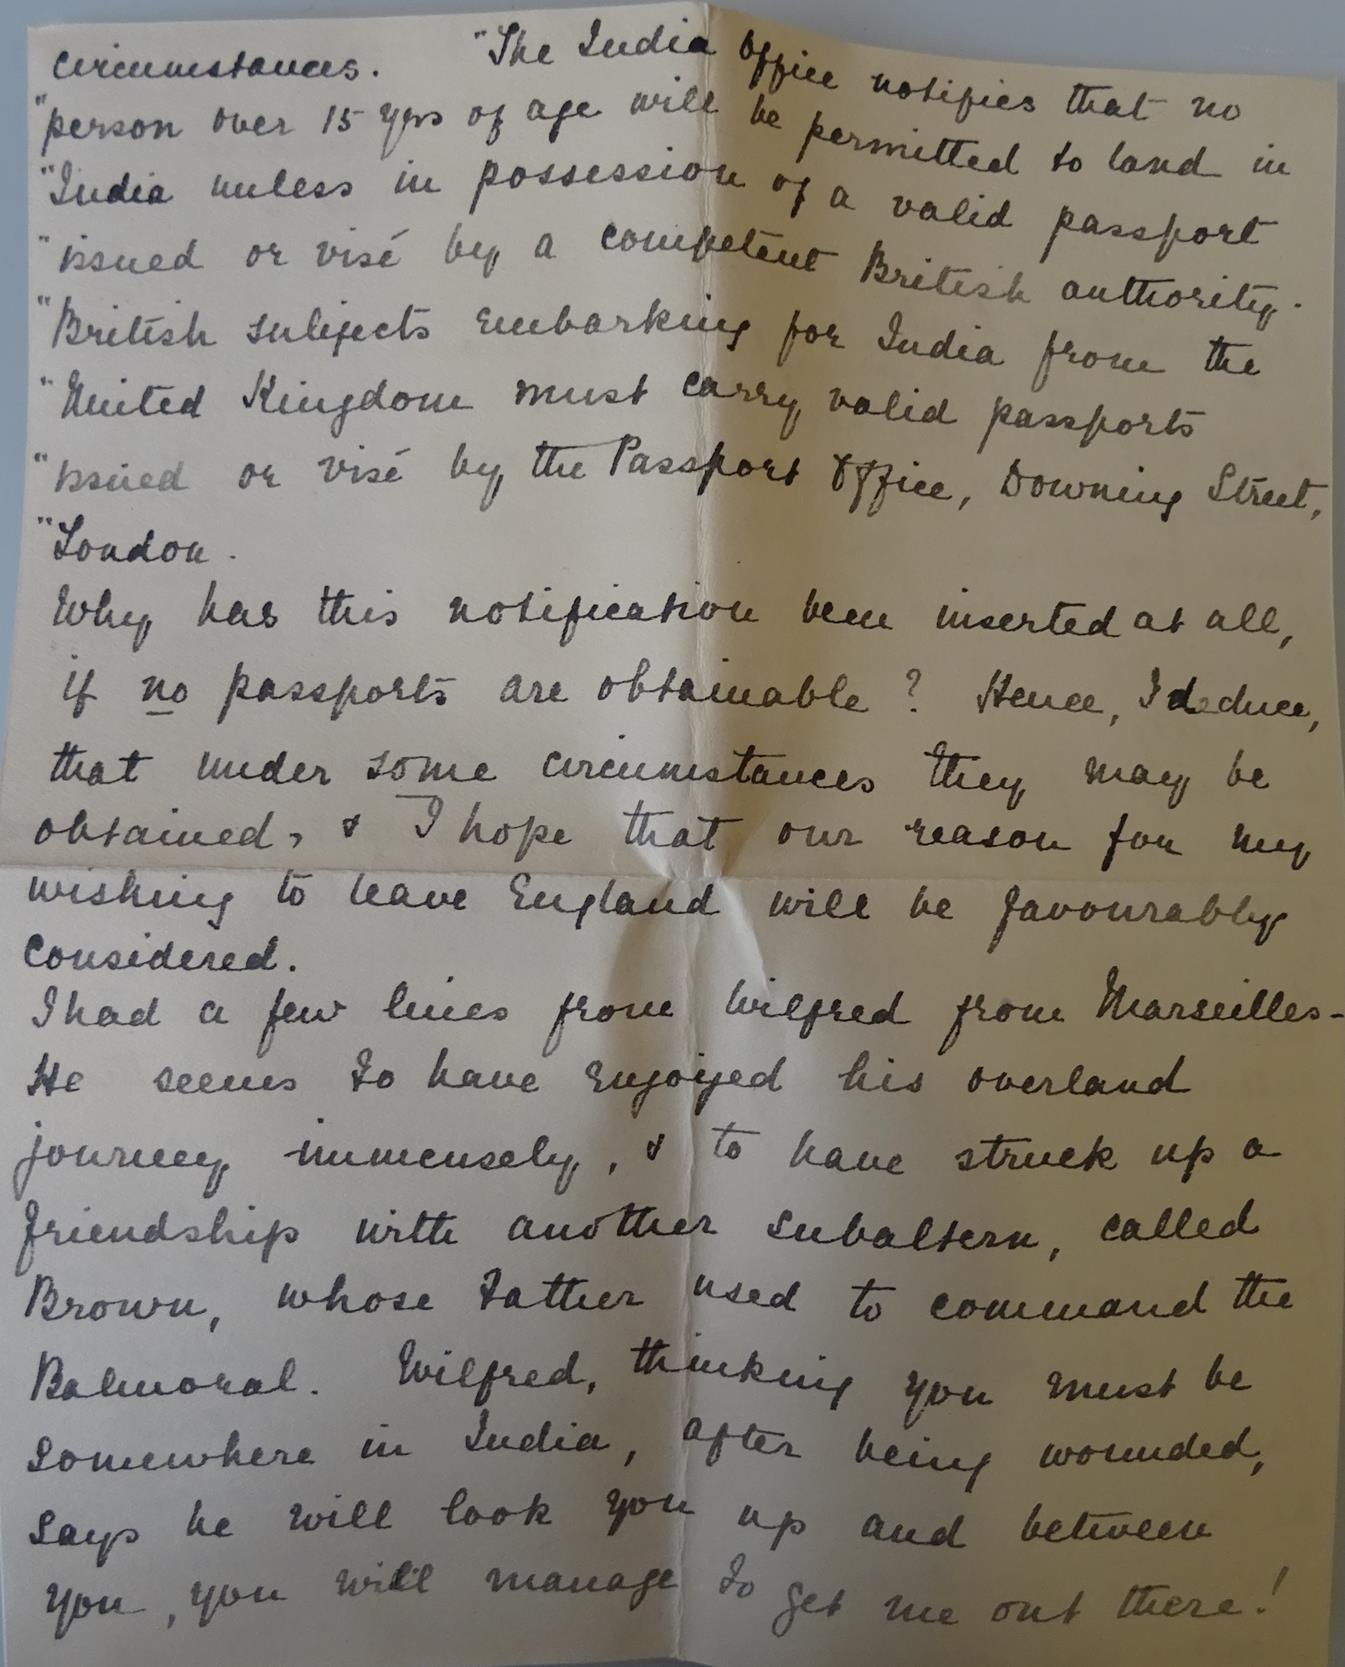 circumstances. "The India Office notifies that no
"person over 15 yrs of age will be permitted to land in
"India unless in possession of a valid passport
"issued or visé by a competent British authority.
"British subjects embarking for India from the
"United Kingdom must carry valid passports
"issued or visé by the Passport Office, Downing Street,
"London.
Why has this notification been inserted at all,
if no passports are obtainable? Hence, I deduce,
that under some circumstances they may be
obtained, & I hope that our reason for my
wishing to leave England will be favourably
considered.
I had a few lines from Wilfred from Marseilles-
He seems to have enjoyed his overland
journey immensely, & to have struck up a
friendship with another subaltern, called
Brown, whose Father used to command the
Balmoral. Wilfred, thinking you must be
somewhere in India, after being wounded,
says he will look you up and between
you, you will manage to get me out there!